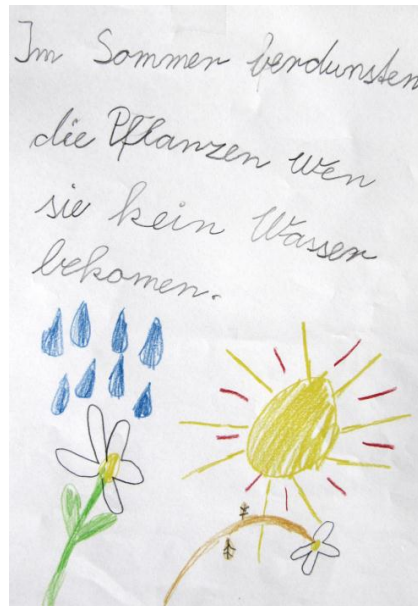 Im Sommer verdunsten
die Pflanzen wen
sie kein Wasser
bekomen.